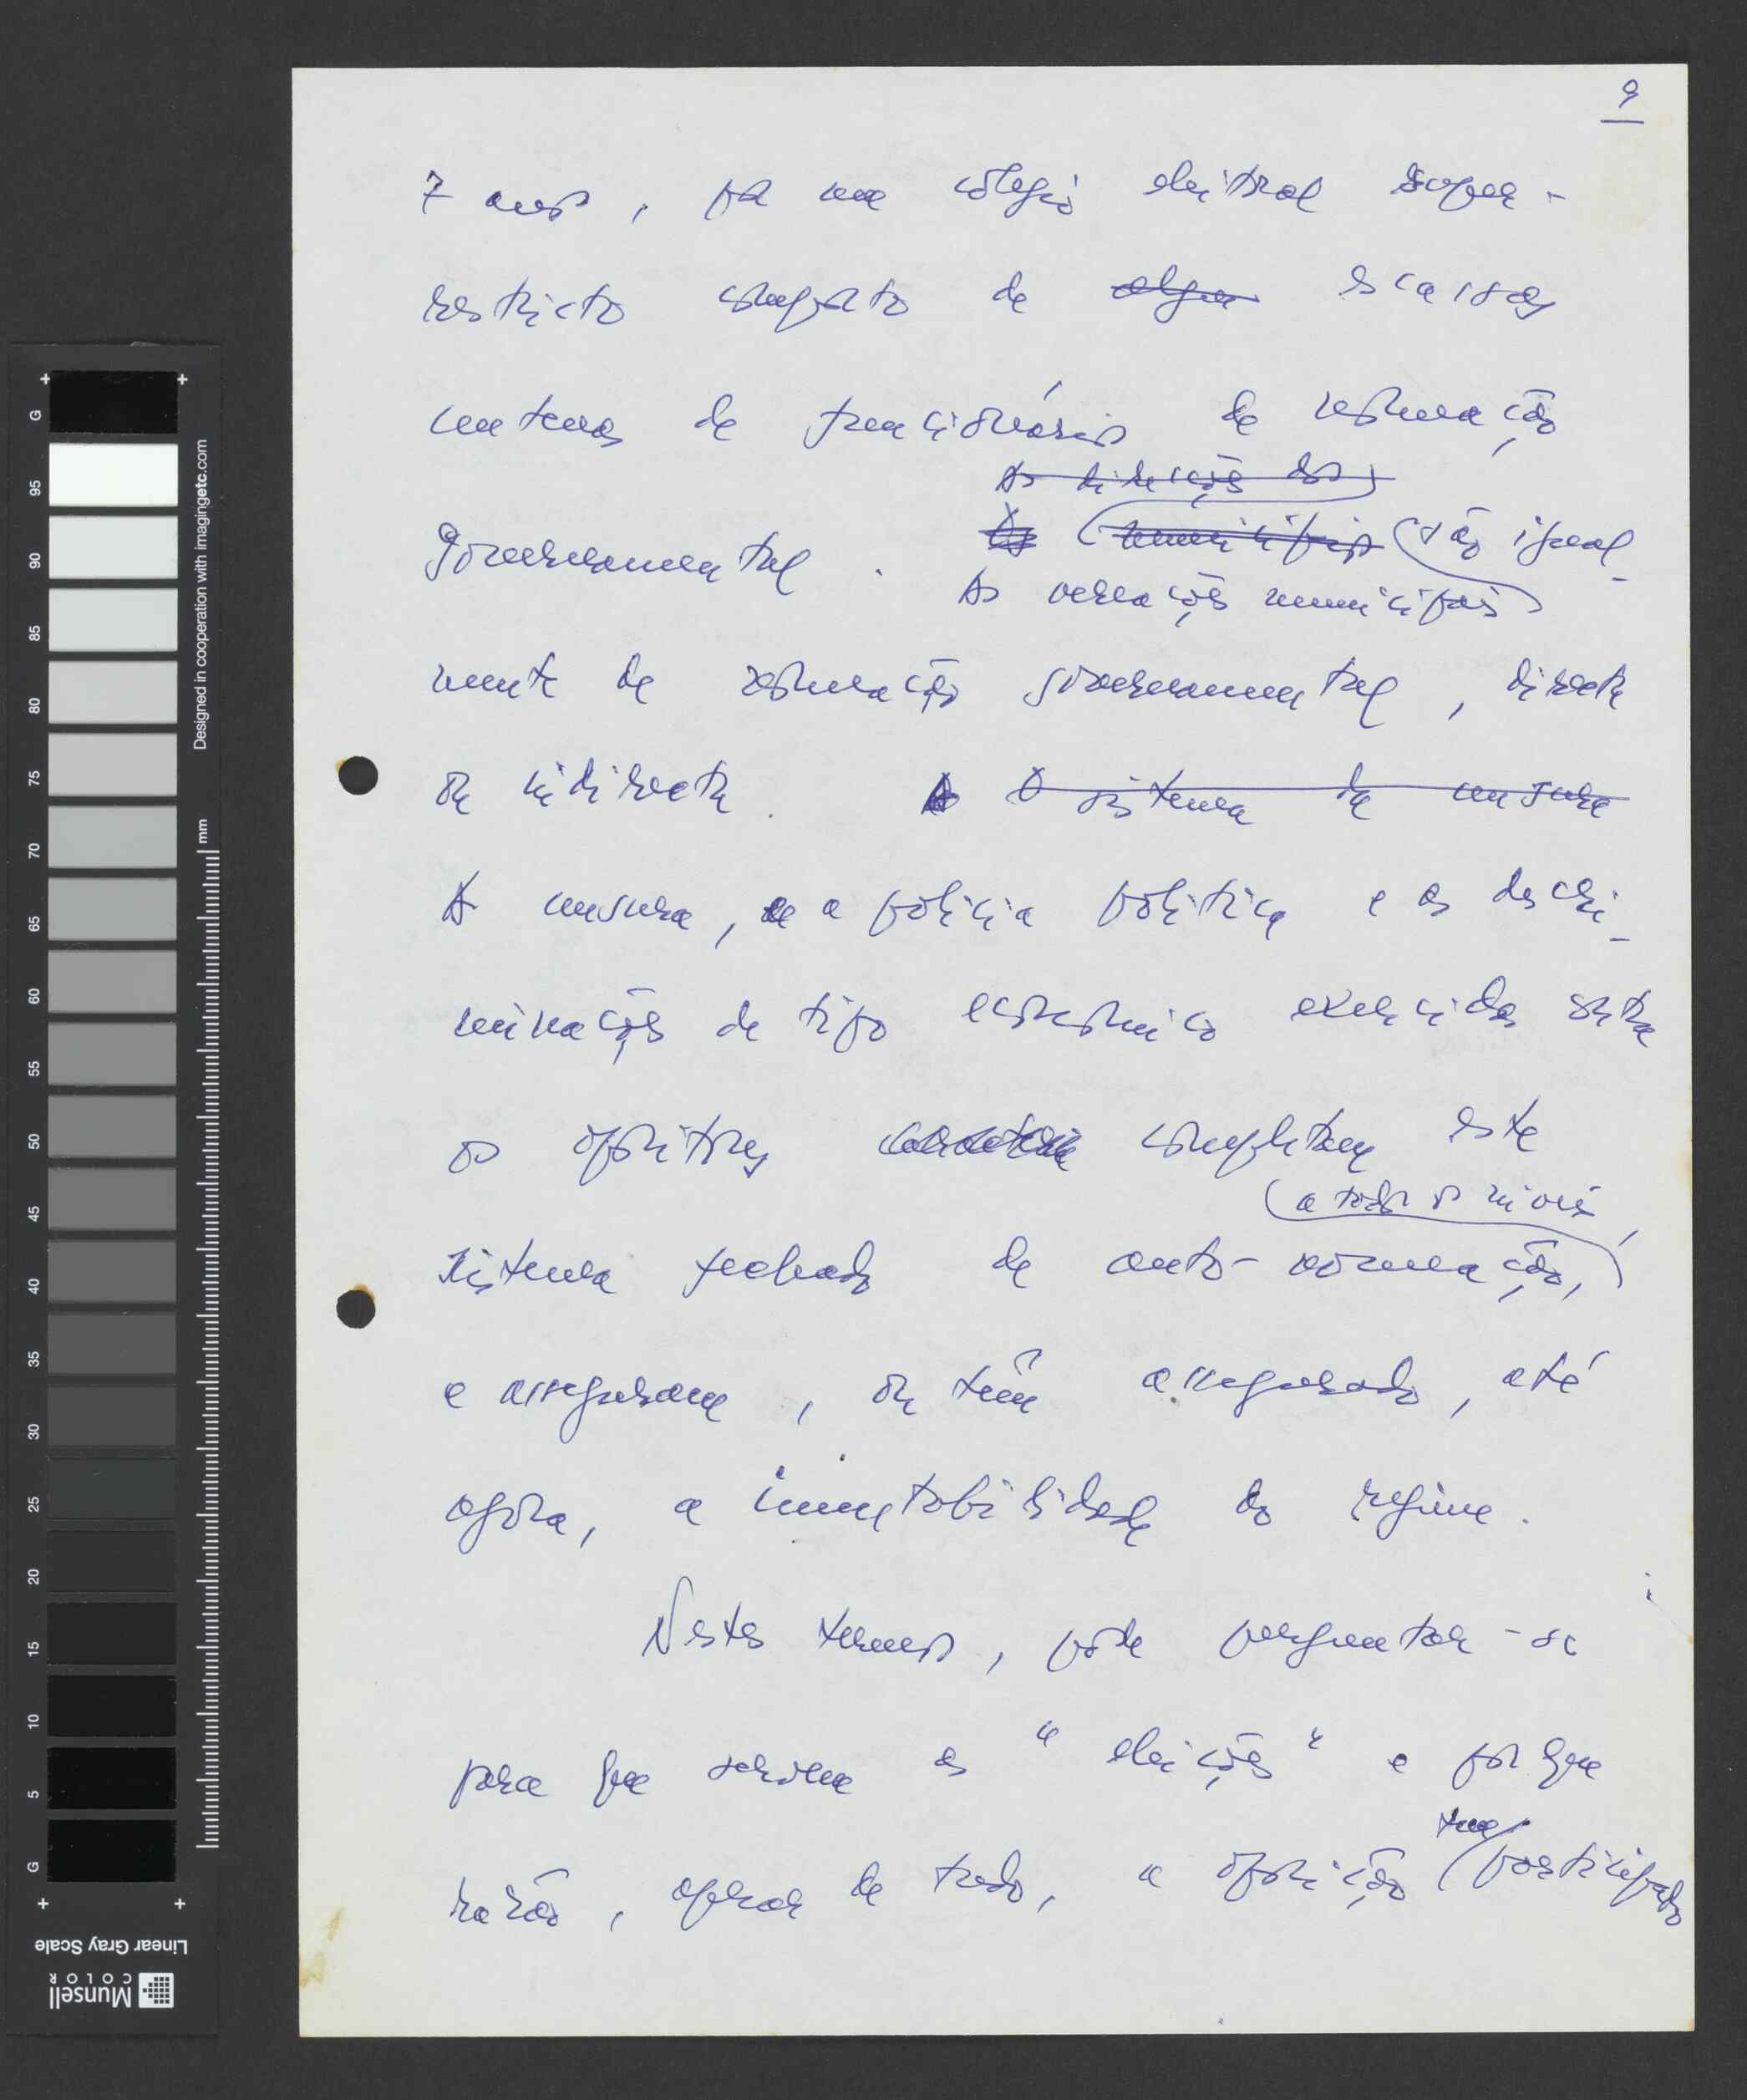 9
7 anos, por um colégio eleitoral super-
restricto composto de algu escassas
centenas de funcionários de nomeação
As direcções dos
governamental. Os municípios são igual-
As vereações municipais
mente de nomeação governamental, directa
ou indirecta. A O sistema de censura
A censura, e a polícia política e as descri-
minações de tipo económico exercidas contra
os opositores completam este
a todos os níveis,
sistema fechado de auto-nomeação,
e asseguram, ou têm assegurado, até
agora, a imutabilidade do regime.
Nestes termos, pode perguntar-se
para que servem as "eleições" e por que
tem
razão, apesar de tudo, a oposição participado
G 95 90 85 80 75 70 65 60 55 50 45 40 35 30 25 20 15 10 5 G
Designed in cooperation with imagingetc.com
mm
Linear Gray Scale
Munsell
COLOR